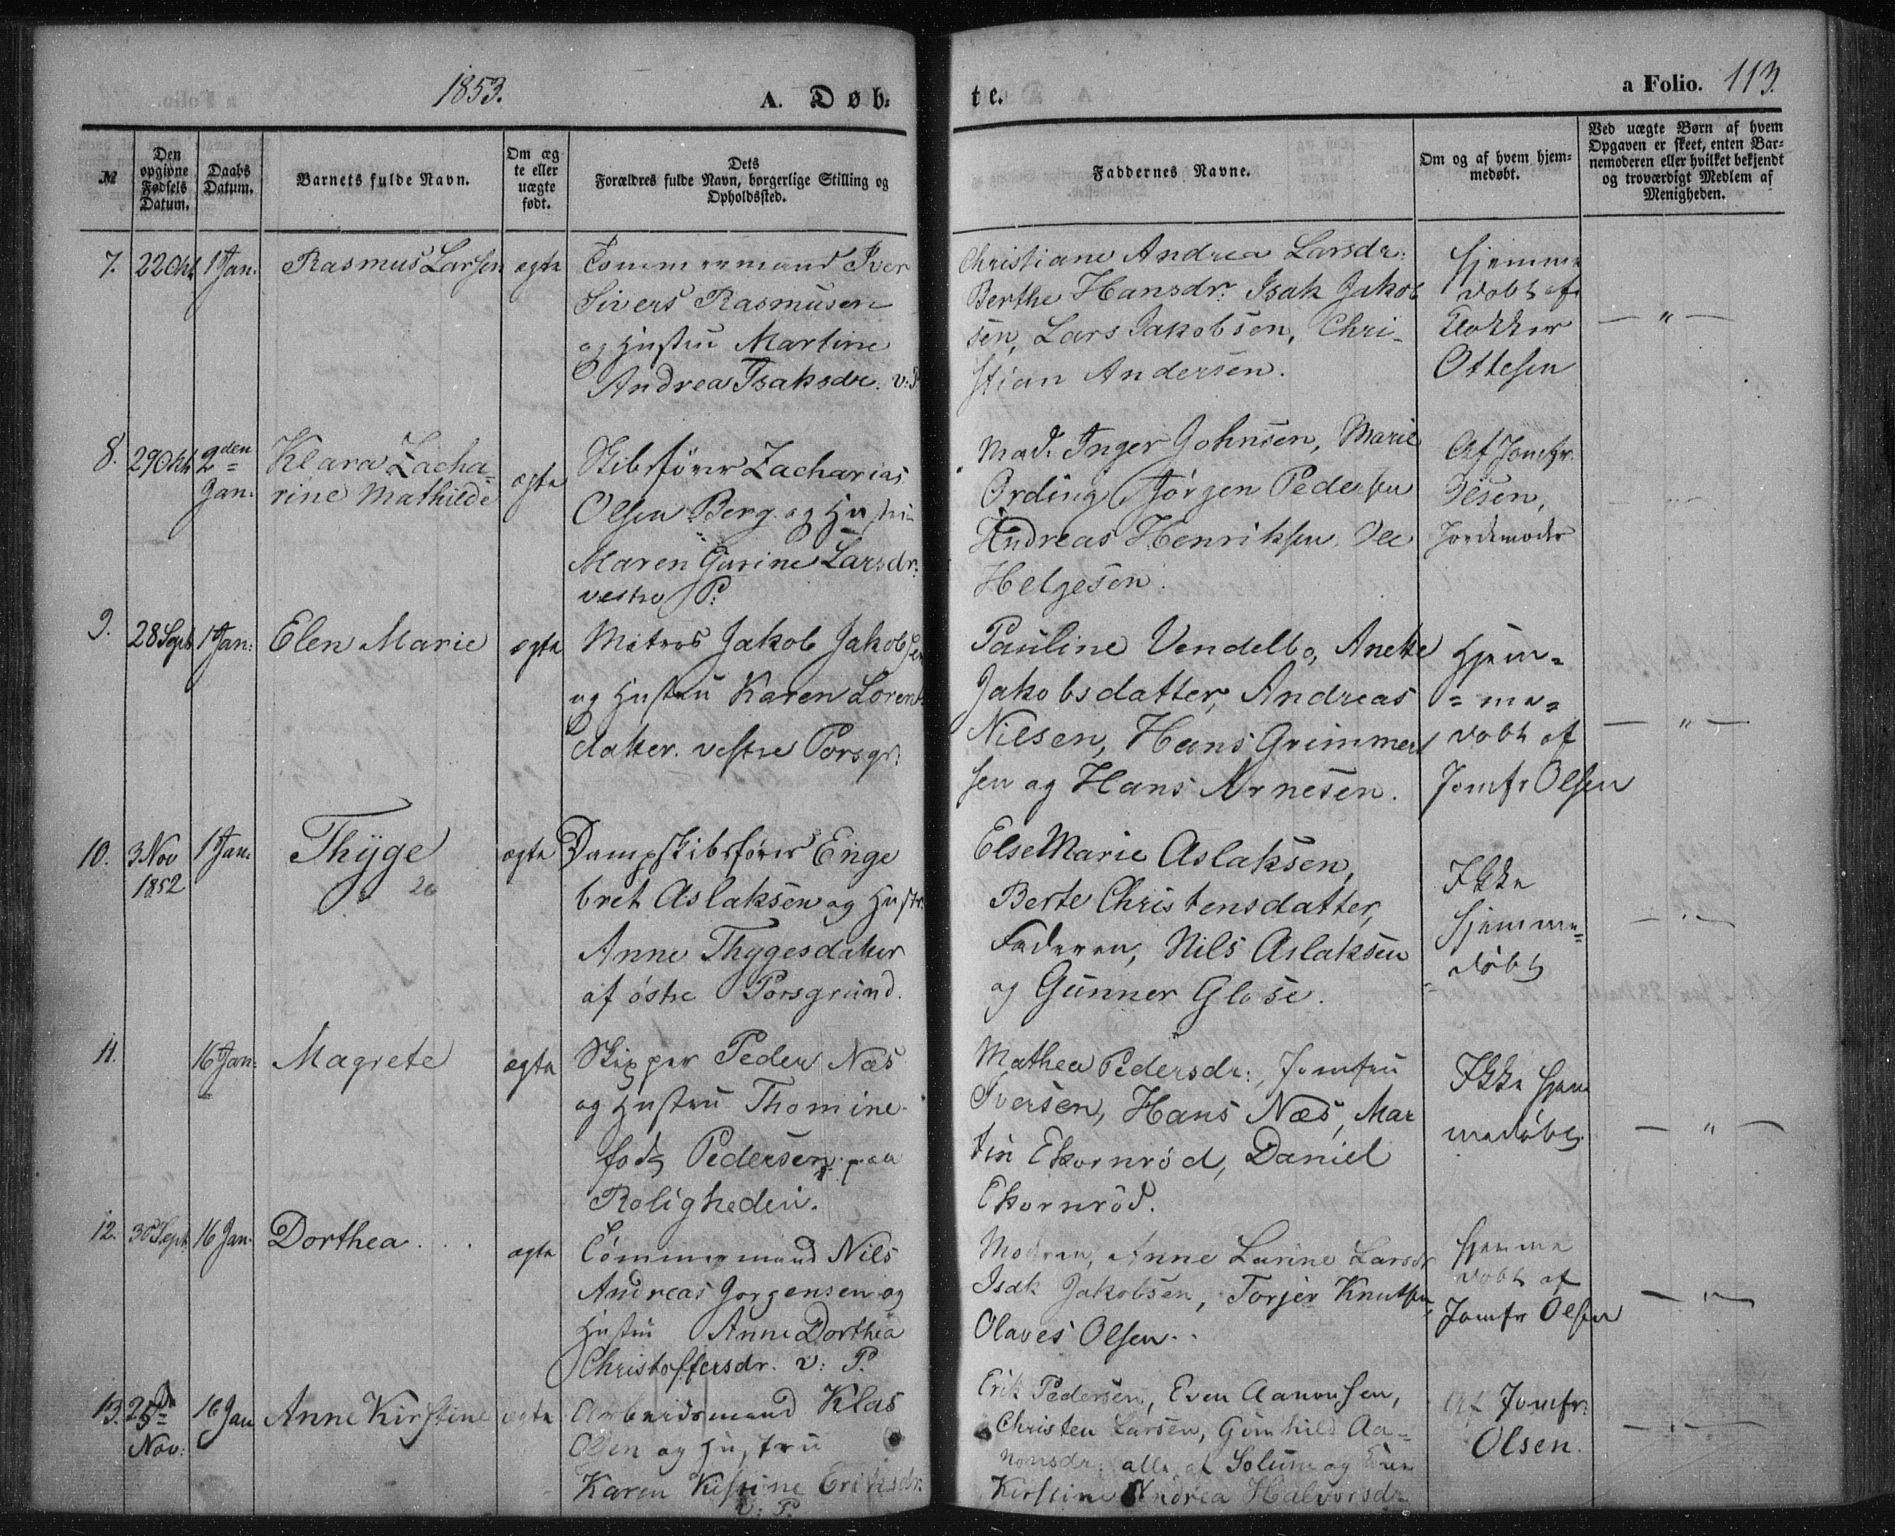 1853.
A. Døb-
te.
a Folio. 113.
№
Den opgivne Fødsels Datum.
Daabs Datum.
Barnets fulde Navn.
Om ægte eller uægte født.
Dets Forældres fulde Navn, borgerlige Stilling og Opholdssted.
Faddernes Navne.
Om og af hvem hjemmedøbt.
Ved uægte Børn af hvem Opgaven er skeet, enten Barnemoderen eller hvilket bekjendt og troværdigt Medlem af Menigheden.
7. 22 Okt 1 Jan. Rasmus Larsen ægte
Tømmermand Iver
Sivers Rasmusen
og Hustru Martine
Andrea Isaksdr. v: P
Christiane Andrea Larsdr:
Berthe Hansdr: Isak Jakob
sen, Lars Jakobsen, Chri-
stian Andersen.
Hjemme
døbt af
Klokker
Ottesen
— " —
8. 29 Okt 2den Jan: Klara Zacha-
rine Mathilde
ægte
Skibsfører Zacharias
Olsen Berg og Hustru
Maren Gurine Larsdr:
vestre P:
Mad. Inger Johnsen, Marie
Ording, Jørgen Pedersen
Andreas Henriksen, Ole
Helgesen.
Af Jomfr.
Olsen,
Jordemoder
9. 28 Sept 1 Jan: Elen Marie ægte
Matros Jakob Jakobsen
og Hustru Karen Lorents
datter. vestre Porsgr:
Pauline Vendelbo, Anette
Jakobsdatter, Andreas
Nilsen, Hans Grimmert
sen og Hans Arnesen.
Hjem=
=me=
døbt af
Jomfr Olsen
— " —
10. 3 Nov 1852 1 Jan. Thyge ægte
Dampskibsfører Enge
bret Aslaksen og Hustr.
Anne Thygesdatter
af østre Porsgrund.
Else Marie Aslaksen,
Berte Christensdatter,
Faderen, Nils Aslaksen
og Gunner Glose.
Ikke
hjemme=
døbt
— " —
11. 16 Jan: Magrete ægte
Skipper Peder Næs
og Hustru Thomine
født Pedersen, paa
Roligheden.
Mathea Pedersdr:, Jomfru
Iversen, Hans Næs, Mar
tin Ekornrød, Daniel
Ekornrød.
Ikke hjem
medøbt
— " —
12. 30 Sept 16 Jan. Dorthea ægte
Tømmermand Nils
Andreas Jørgensen og
Hustru Anne Dorthea
Christoffersdr. v: P.
Modren, Anne Lurine Larsdr
Isak Jakobsen, Torjer Knutsen,
Olaves Olsen.
Hjemme
døbt af
Jomfr Olsen
— " —
13. 25de Nov: 16 Jan Anne Kirstine ægte
Arbeidsmand Klas
Olsen og Hustru
Karen Kistine Eriksdr.
v: P.
Erik Pedersen, Even Aanonsen,
Christen Larsen, Gunhild Aa=
nonsdr: alle af Solum og
Kirstine Andrea Halvorsdr
Af Jomfr:
Olsen.
— " —